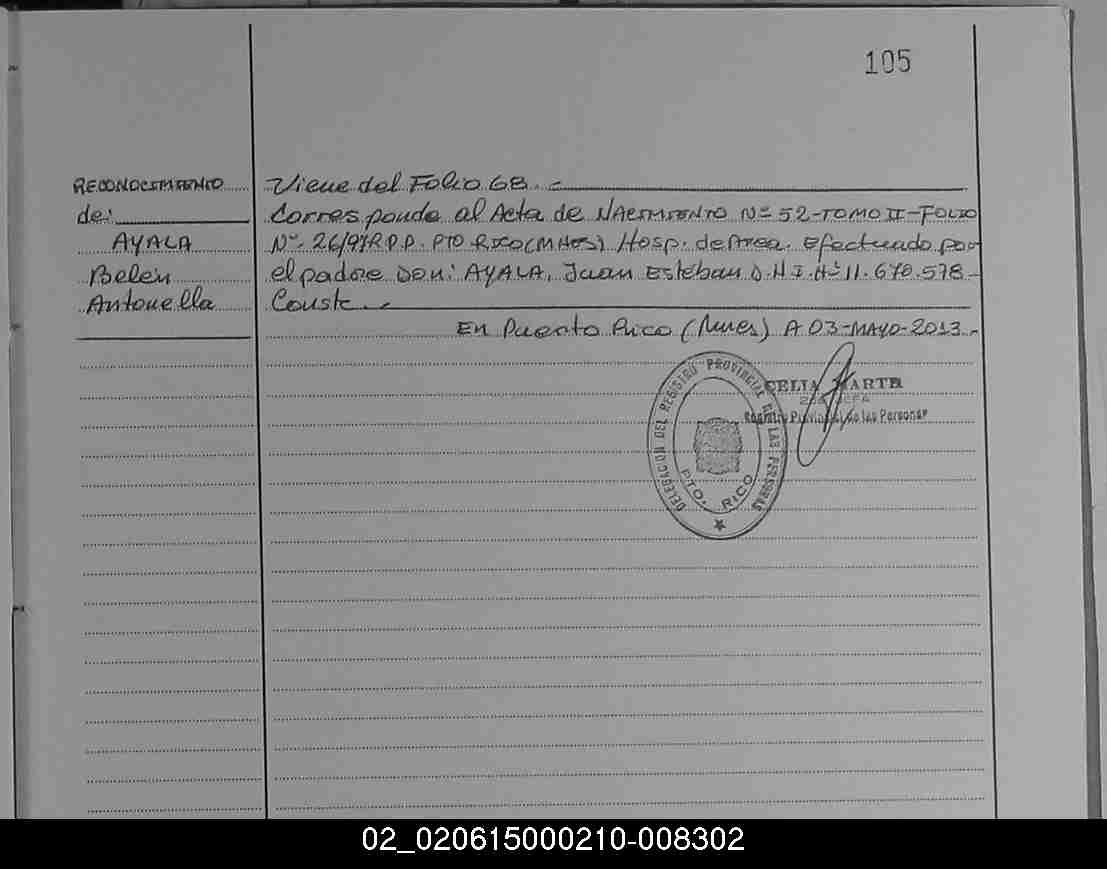 105
RECONOCIMIENTO
de:
AYALA
Belén
Antonella
Viene del Folio 68.-
Corresponde al Acta de NACIMIENTO Nº 52-TOMO II-FOLIO
Nº 26/97R.P.P. PTO RICO(MNES) Hosp. de Area. Efectuado por
el padre Don: AYALA, Juan Esteban D.N.I. Nº 11.670.578-
Conste.-
En Puerto Rico (Mnes) A 03-MAYO-2013.-
DELEGACION DEL REGISTRO PROVINCIAL DE LAS PERSONAS
PTO. RICO
CELIA MARTH
JEFA
Registro Provincial de las Personas
02_020615000210-008302